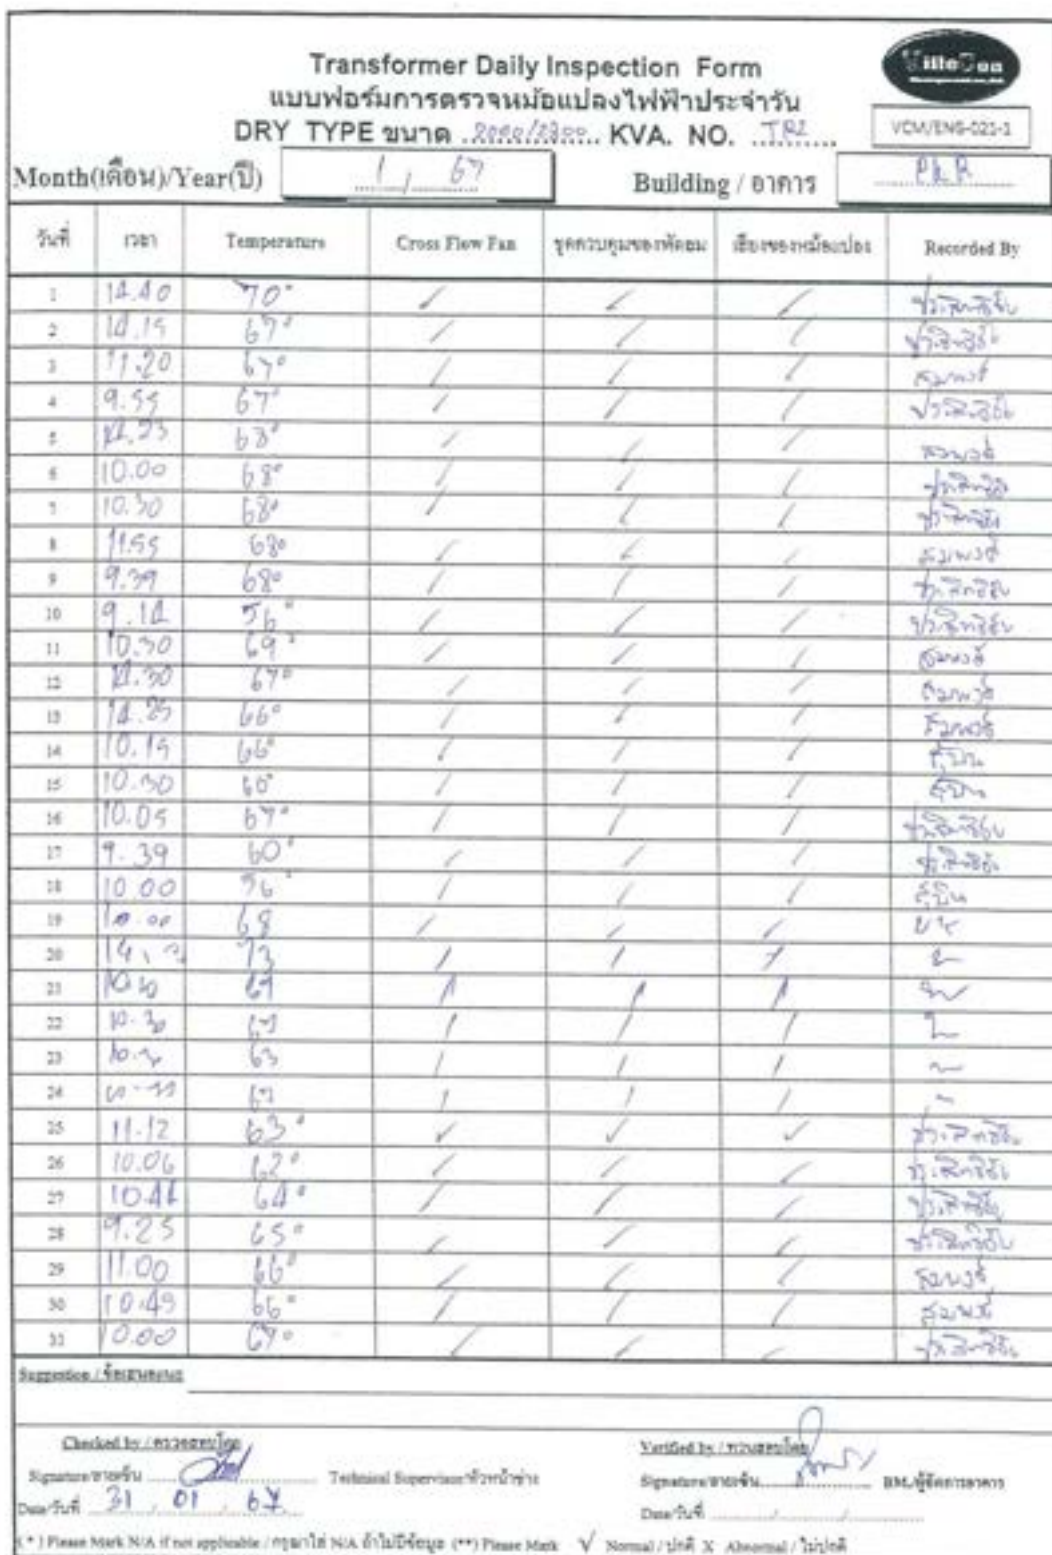 Transformer Daily Inspection Form
แบบฟอร์มการตรวจหม้อแปลงไฟฟ้าประจำวัน
DRY TYPE ขนาด 2000/2300 KVA. NO. TR2
VCM/ENG-021-1
Month(เดือน)/Year(ปี) 1 / 67 Building / อาคาร
วันที่ เวลา Temperature Cross Flow Fan ชุดควบคุมของพัดลม เสียงของหม้อแปลง Recorded By
1 14.40 70° / / / ประสิทธิ์ชัย
2 14.15 67° / / / ประสิทธิ์ชัย
3 11.20 67° / / / สมพงษ์
4 9.55 67° / / / ประสิทธิ์ชัย
5 68° / / / สมพงษ์
6 10.00 68° / / / ประสิทธิ์ชัย
7 10.30 68° / / / ประสิทธิ์ชัย
8 11.55 68° / / / สมพงษ์
9 9.39 68° / / / ประสิทธิ์ชัย
10 9.14 56° / / / ประสิทธิ์ชัย
11 10.30 69° / / / สมพงษ์
12 67° / / / สมพงษ์
13 14.25 66° / / / สมพงษ์
14 10.15 66° / / /
15 10.30 / / /
16 10.05 67° / / / ประสิทธิ์ชัย
17 9.39 60° / / / ประสิทธิ์ชัย
18 10.00 56° / / /
19 68 / / /
20 73 / / /
21 / / /
22 10.30 / / /
23 63 / / /
24 / / /
25 11.12 63° ✓ ✓ ✓ ประสิทธิ์ชัย
26 10.06 62° / / / ประสิทธิ์ชัย
27 10.44 64° / / / ประสิทธิ์ชัย
28 9.25 65° / / / ประสิทธิ์ชัย
29 11.00 66° / / / สมพงษ์
30 10.45 66° / / / สมพงษ์
31 10.00 67° / / / ประสิทธิ์ชัย
Suggestion / ข้อเสนอแนะ
Checked by / ตรวจสอบโดย Verified by / ทวนสอบโดย
Signature/ลายเซ็น Technical Supervisor/หัวหน้าช่าง Signature/ลายเซ็น BM./ผู้จัดการอาคาร
Date/วันที่ 31 / 01 / 67 Date/วันที่
(*) Please Mark N/A if not applicable / กรุณาใส่ N/A ถ้าไม่มีข้อมูล (**) Please Mark √ Normal / ปกติ X Abnormal / ไม่ปกติ